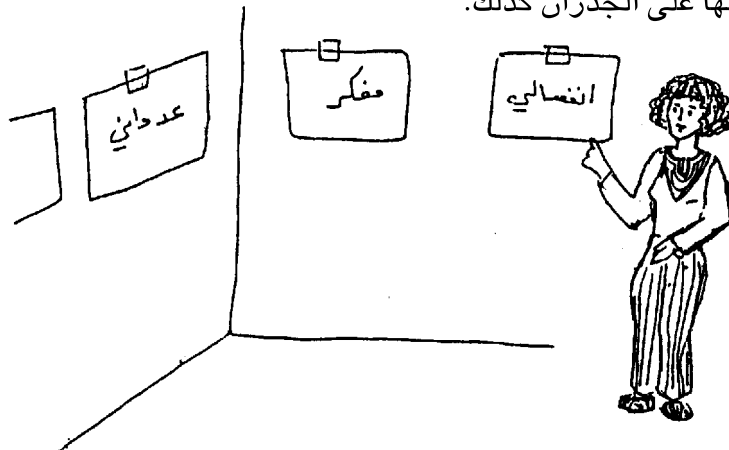 ها على الجدران كذلك.
انفعالي
مفكر
عدواني